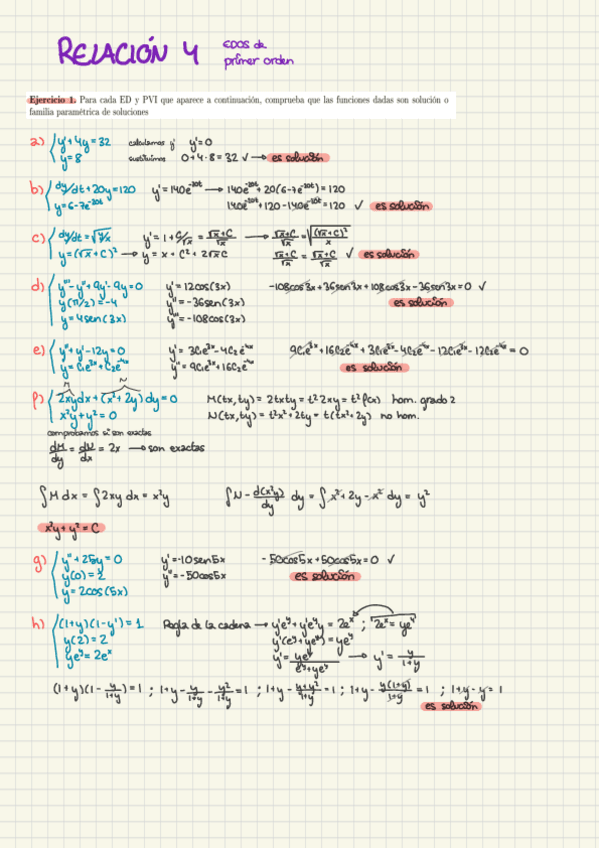 RELACIÓN 4 EDOS de primer orden
Ejercicio 1. Para cada ED y PVI que aparece a continuación, comprueba que las funciones dadas son solución o
familia paramétrica de soluciones
a) y'+4y=32 calculamos y' y'=0
y=8 sustituimos 0+4·8=32 ✓ → es solución
b) dy/dt+20y=120 y'=140e^-20t → 140e^-20t+20(6-7e^-20t)=120
y=6-7e^-20t 140e^-20t+120-140e^-20t=120 ✓ es solución
c) dy/dt=√(y/x) y'=1+C/√x = (√x+C)/√x → (√x+C)/√x = √((√x+C)²/x)
y=(√x+C)² → y=x+C²+2√x C (√x+C)/√x = (√x+C)/√x ✓ es solución
d) y'''-y''+9y'-9y=0 y'=12cos(3x) -108cos3x+36sen3x+108cos3x-36sen3x=0 ✓
y(π/2)=-4 y''=-36sen(3x) es solución
y=4sen(3x) y'''=-108cos(3x)
e) y''+y'-12y=0 y'=3C₁e^3x-4C₂e^-4x 9C₁e^3x+16C₂e^-4x+3C₁e^3x-4C₂e^-4x-12C₁e^3x-12C₂e^-4x=0
y=C₁e^3x+C₂e^-4x y''=9C₁e^3x+16C₂e^-4x es solución
M N
f) 2xydx+(x²+2y)dy=0 M(tx,ty)=2txty=t²2xy=t²f(x) hom. grado 2
x²y+y²=0 N(tx,ty)=t²x²+2ty=t(tx²+2y) no hom.
comprobamos si son exactas
dM/dy=dN/dx=2x → son exactas
∫M dx=∫2xy dx=x²y ∫N-d(x²y)/dy dy=∫x²+2y-x² dy=y²
x²y+y²=C
g) y''+25y=0 y'=-10sen5x -50cos5x+50cos5x=0 ✓
y(0)=2 y''=-50cos5x es solución
y=2cos(5x)
h) (1+y)(1-y')=1 Regla de la cadena → y'e^y+y'e^y y=2e^x ; 2e^x=ye^y
y(2)=2 y'(e^y+ye^y)=ye^y
ye^y=2e^x y'=ye^y/(e^y+ye^y) → y'=y/(1+y)
(1+y)(1-y/(1+y))=1 ; 1+y-y/(1+y)-y²/(1+y)=1 ; 1+y-(y+y²)/(1+y)=1 ; 1+y-y(1+y)/(1+y)=1 ; 1+y-y=1
es solución